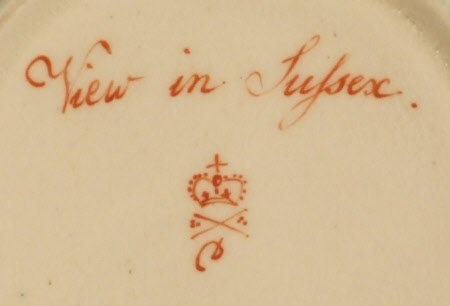 View in Suſsex.
D